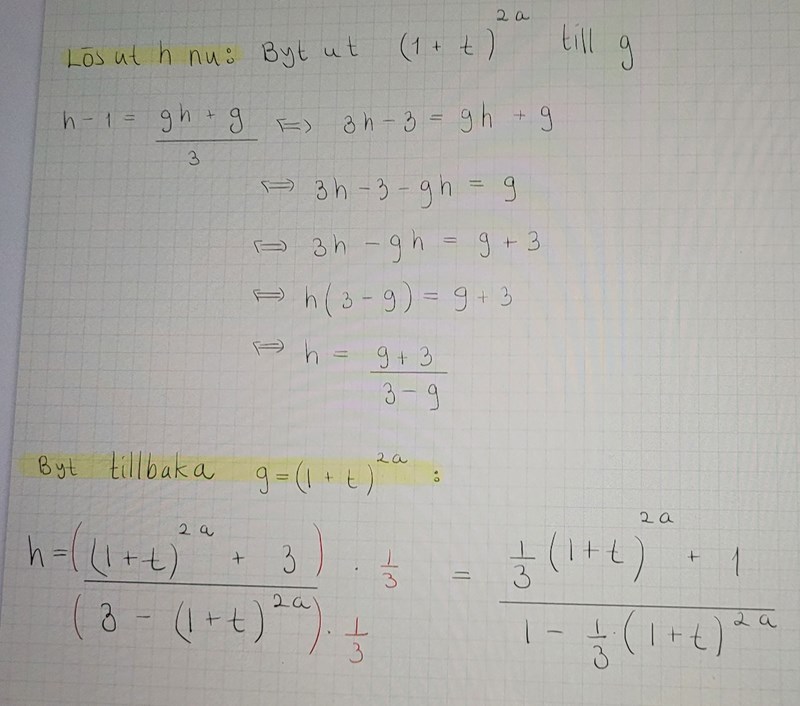 Lös ut h nu: Byt ut (1 + t)^2a till g
h - 1 = (gh + g)/3 ⟺ 3h - 3 = gh + g
⟺ 3h - 3 - gh = g
⟺ 3h - gh = g + 3
⟺ h(3 - g) = g + 3
⟺ h = (g + 3)/(3 - g)
Byt tillbaka g = (1 + t)^2a :
h = (((1+t)^2a + 3) · 1/3)/((3 - (1+t)^2a) · 1/3) = (1/3 (1+t)^2a + 1)/(1 - 1/3 · (1+t)^2a)